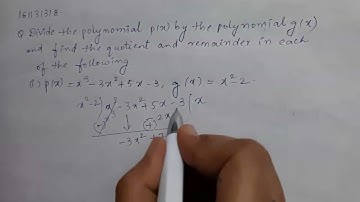 161131318
Q Divide the polynomial p(x) by the polynomial g(x)
and find the quotient and remainder in each
of the following
(i) p(x) = x³ - 3x² + 5x - 3, g(x) = x² - 2.
x² - 2) x³ - 3x² + 5x - 3 ( x
(-) (+) 2x
-3x² + 7